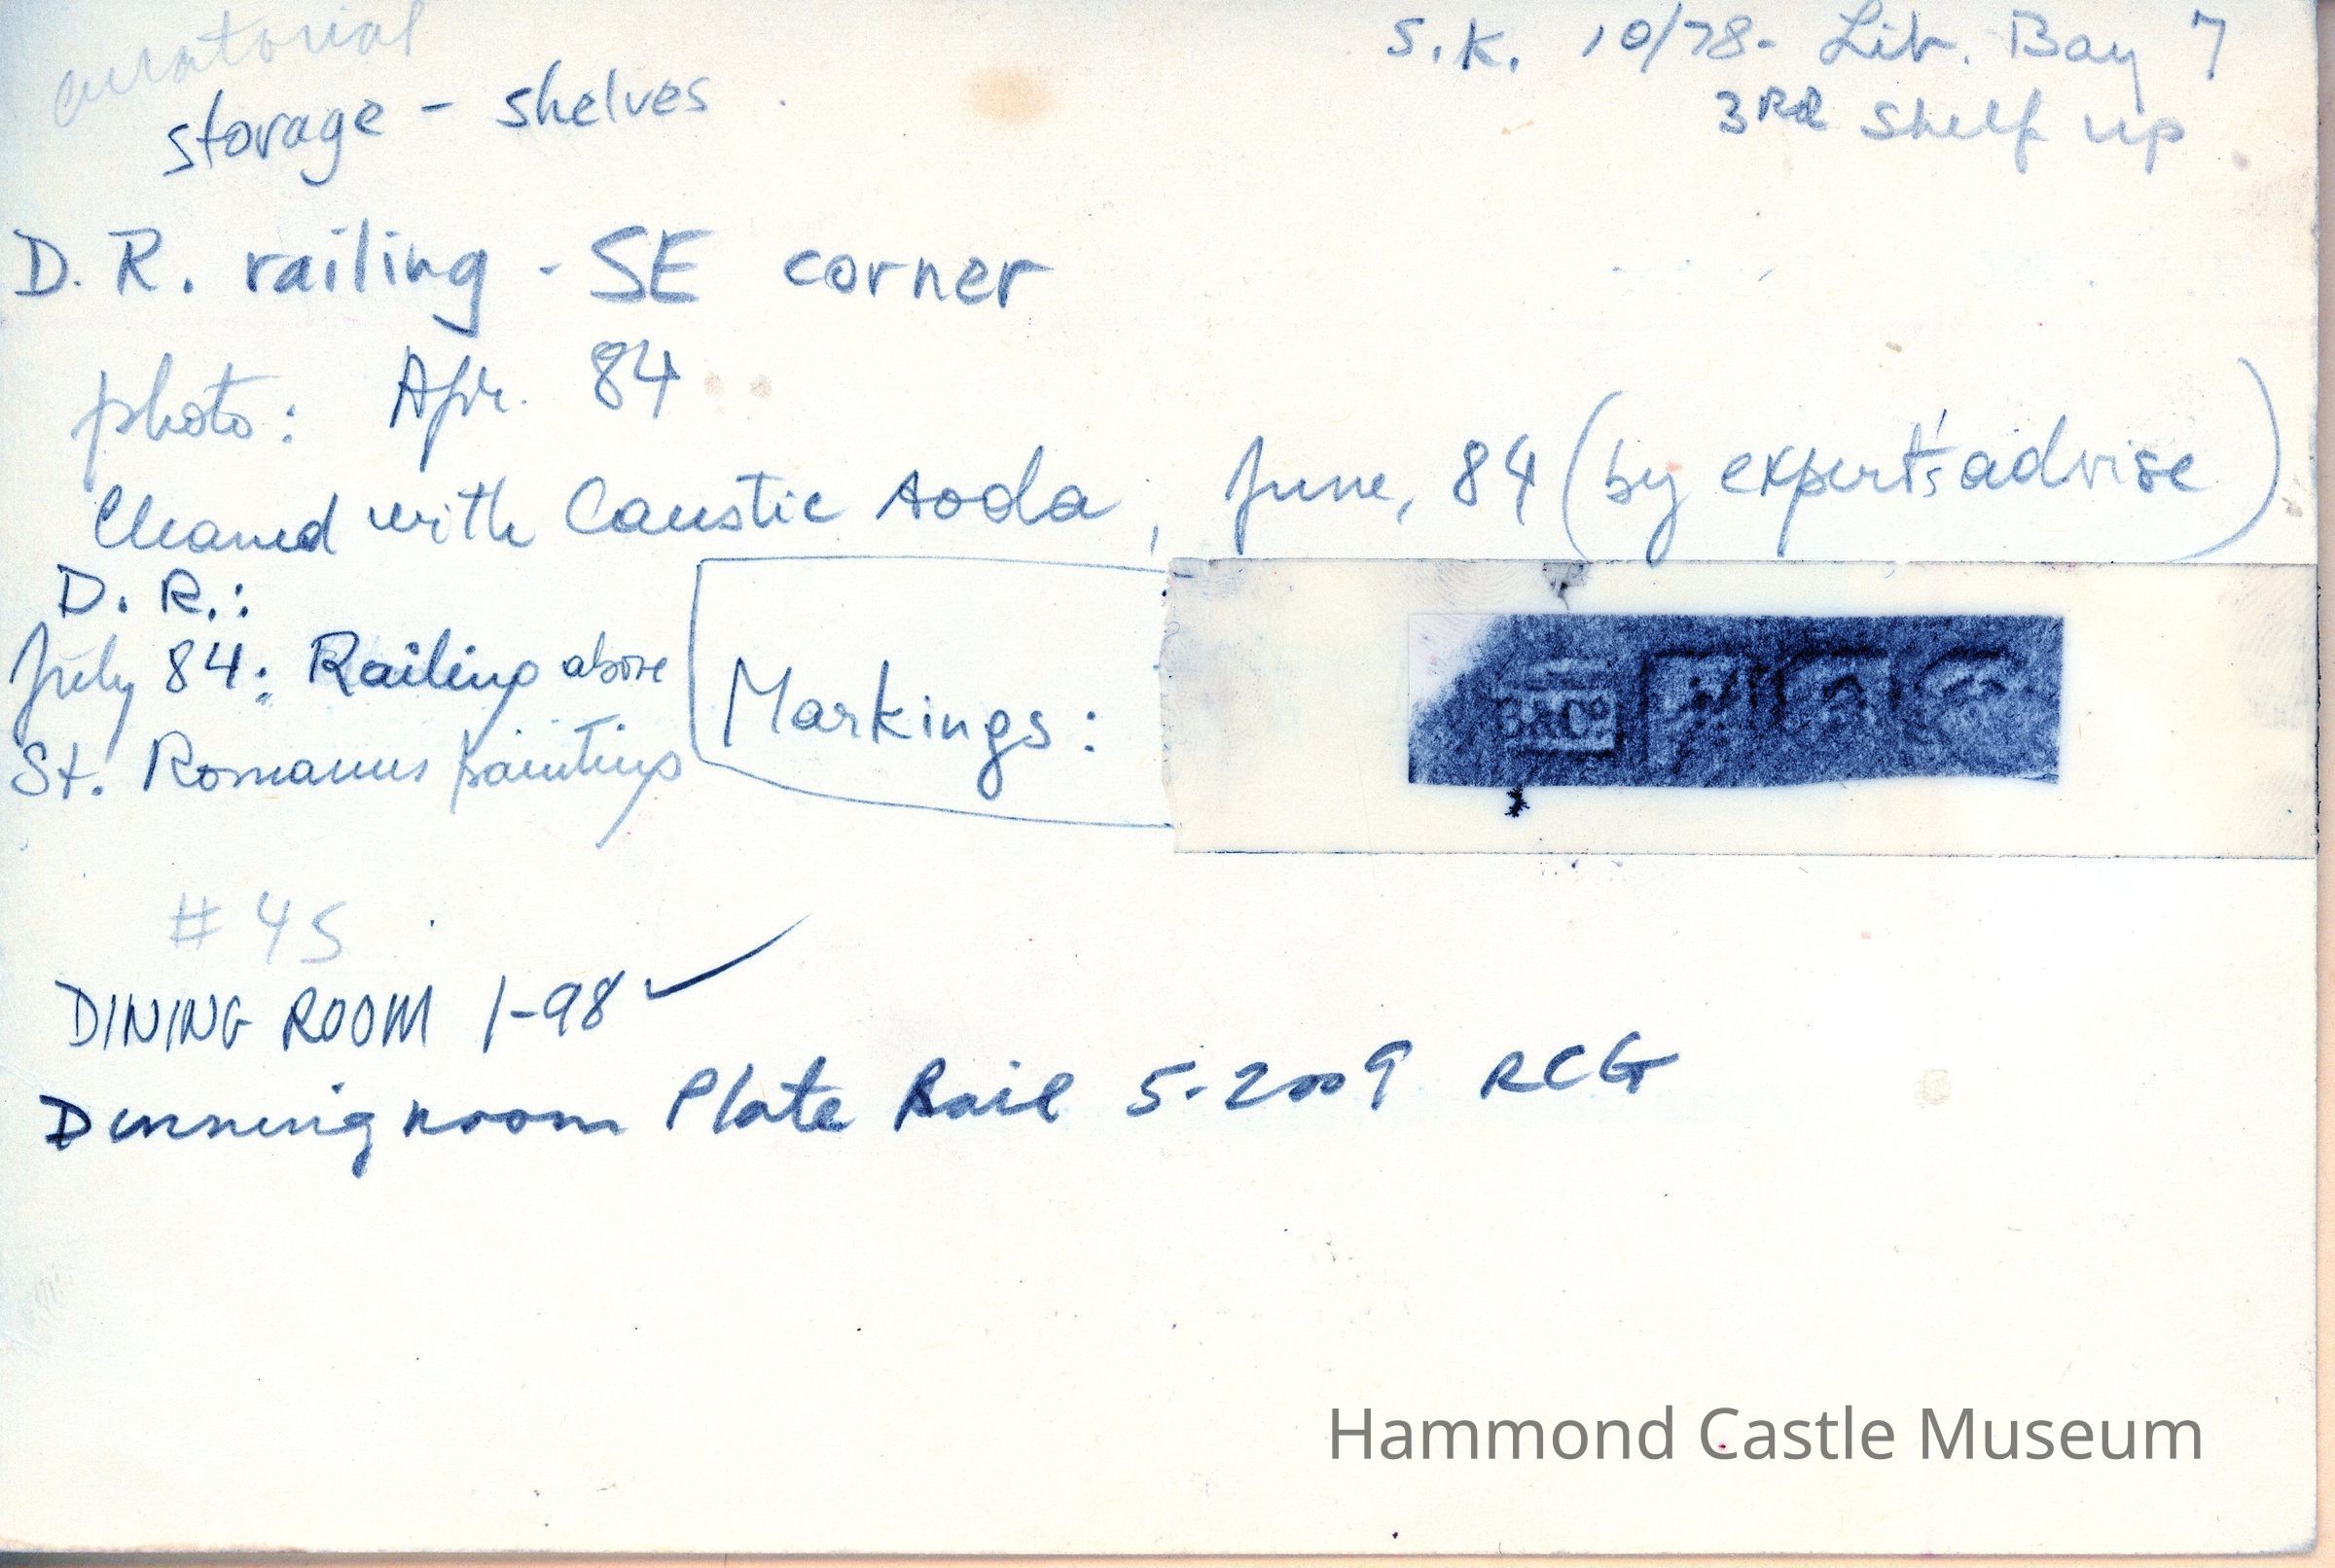 curatorial
storage - shelves
S.K. 10/78- Lib. Bay 7
3RD Shelf up
D.R. railing - SE corner
photo: Apr. 84
Cleaned with Caustic soda, June, 84 (by expert's advise)
D.R.:
July 84: Railing above
St. Romanus painting
Markings:
B&Co
#45
DINING ROOM 1-98 ✓
Dinning room Plate Rail 5-2009 RCG
Hammond Castle Museum